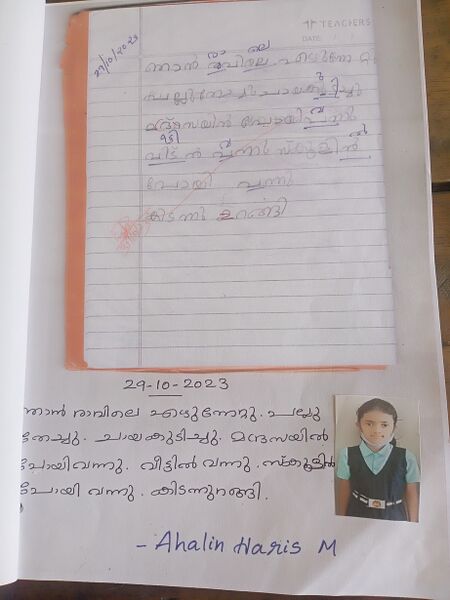 TEACHERS
DATE / /
29/10/2023
ഞാൻ രാവിലെ എടുന്നേറ്റു
പല്ലുതേച്ചു ചായകുടിച്ചു
മദ്രസയിൽ പോയി വന്നു
വീട്ടിൽ വന്നു സ്കൂളിൽ
പോയി വന്നു
കിടന്നു ഉറങ്ങി
29-10-2023
ഞാൻ രാവിലെ എഴുന്നേറ്റു. പല്ലു
തേച്ചു. ചായകുടിച്ചു. മദ്രസയിൽ
പോയിവന്നു. വീട്ടിൽ വന്നു. സ്കൂളിൽ
പോയി വന്നു. കിടന്നുറങ്ങി.
- Ahalin Haris M